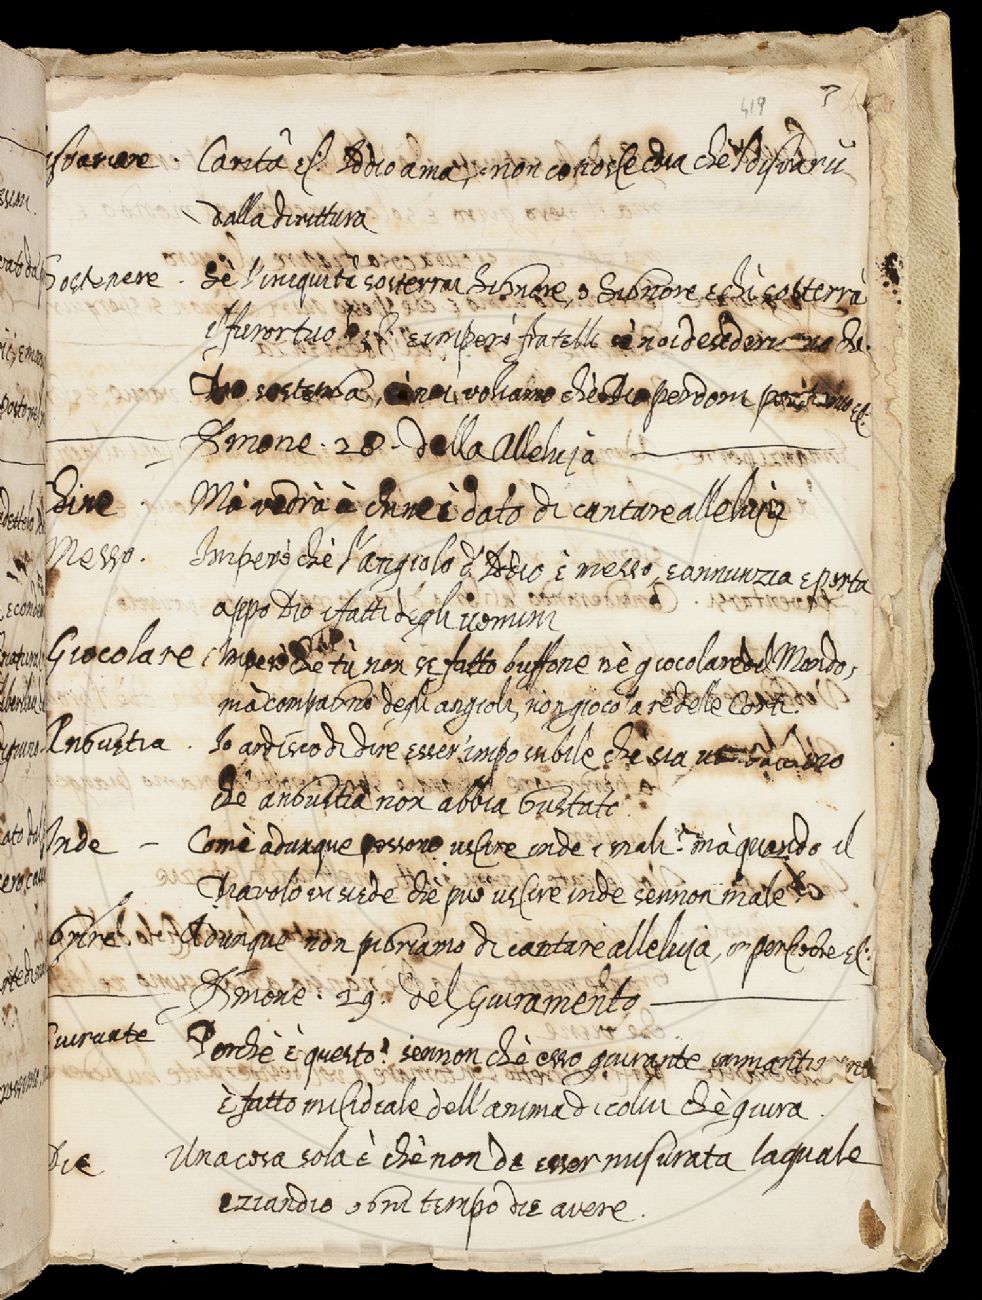 419
Carità &c. Iddio ama, e non conosce cosa che 'l disvarii
dalla dirittura
Sostenere . Sè l'iniquità sosterrai Signore, o Signore, e chi sosterrà
il furor tuo &c. e imperò fratelli se noi desideriamo che
Dio sostenga, e noi vogliamo chè Dio perdoni &c.
Sermone . 28 . della Alleluja
Ma vedrà à chi ne è dato di cantare alleluia
Messo . Imperò chè l'angiolo d'Iddio è messo, e annunzia e porta
appo Dio i fatti degli uomini
Giocolare Imperò chè tù non se fatto buffone nè giocolare del Mondo,
mà compagno degli angioli, non giocolare delle Corti.
Angustia . Io ardisco di dire esser' impossibile chè sia
chè angustia non abbia gustato
Inde – Come adunque possono uscire inde i mali? mà quando il
Diavolo vi siede chè può uscire inde sennon male
Adunque non pigriamo di cantare alleluja, imperciocchè &c.
Sermone . 29 . del Giuramento
Giurante Perchè è questo? sennon chè esso giurante
è fatto micidiale dell'anima di colui chè giura .
Die Una cosa sola è chè non de esser misurata la quale
eziandio ogni tempo die avere .